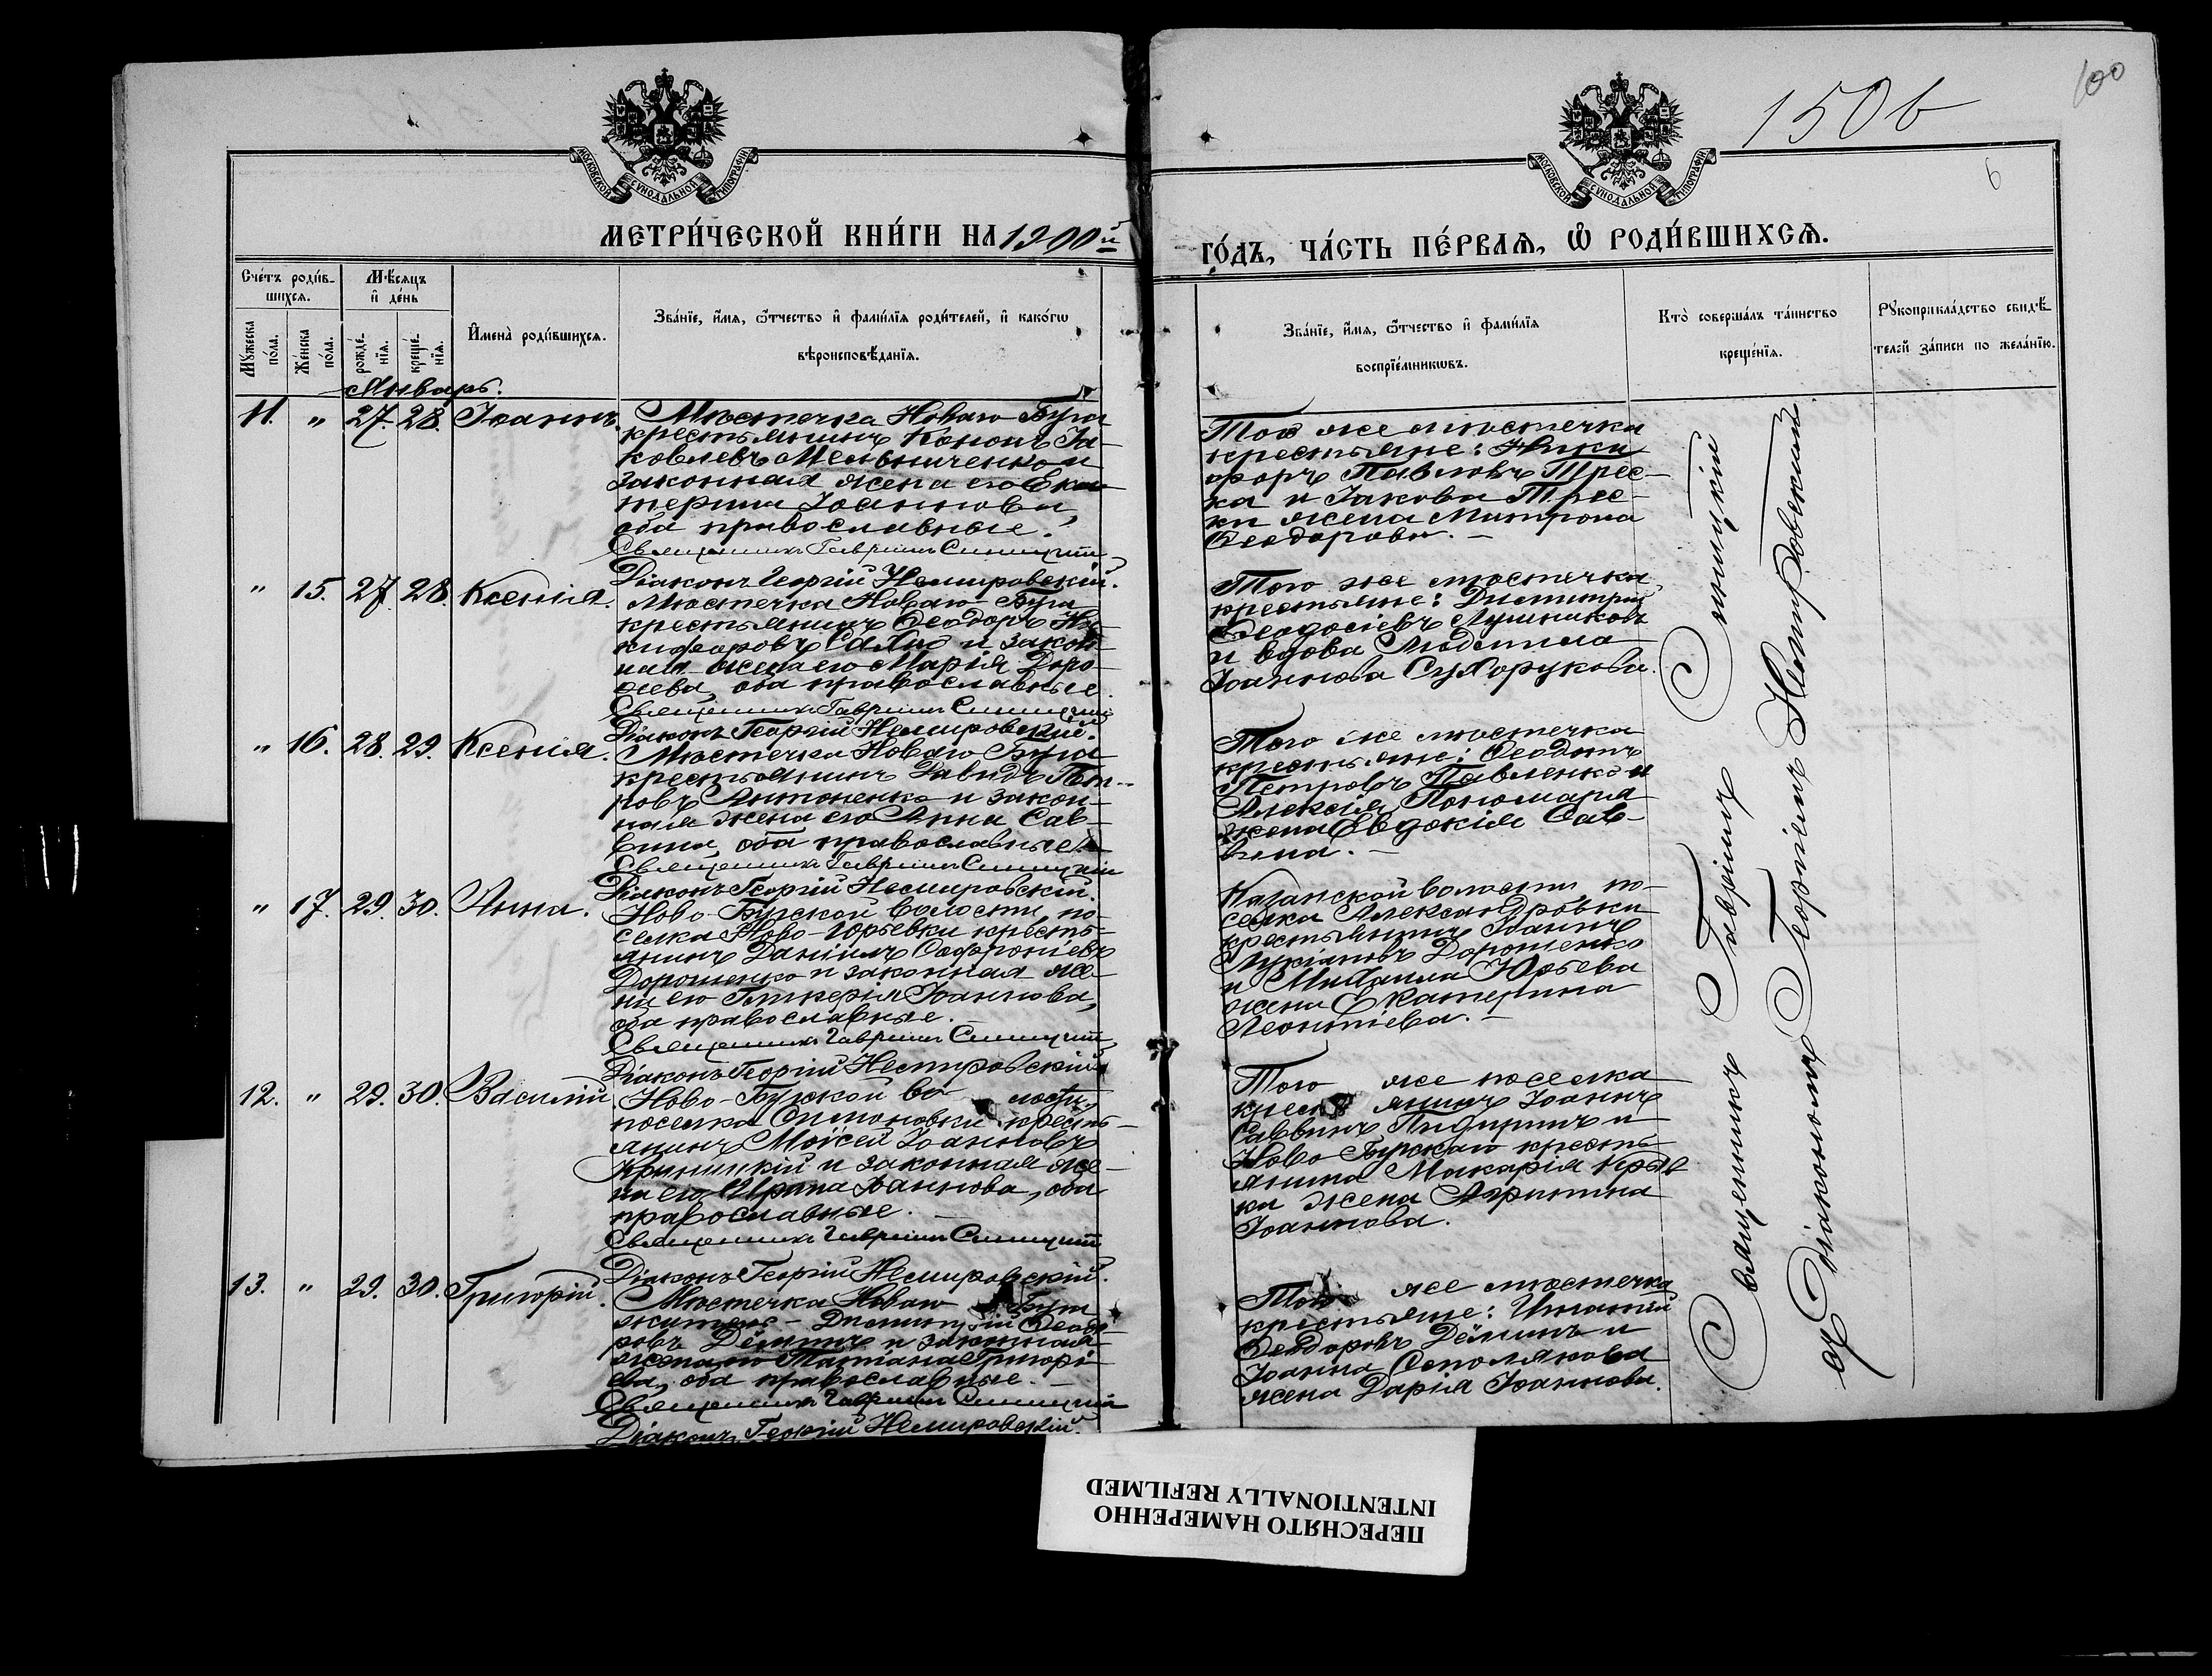 150 б
100
6
МОСКОВСКОЙ СѴНОДАЛЬНОЙ ТИПОГРАФІИ
МОСКОВСКОЙ СѴНОДАЛЬНОЙ ТИПОГРАФІИ
МЕТРИ́ЧЕСКОЙ КНИ́ГИ НА 1900й
ГО́ДЪ, ЧА́СТЬ ПЕ́РВАѦ, Ѡ҆ РОДИ́ВШИХСѦ.
Сче́тъ роди́в-
шихсѧ.
Мѣ́сѧцъ
и҆ де́нь
Мꙋ́жеска
по́ла.
Же́нска
по́ла.
рожде́-
нїѧ.
креще́-
нїѧ.
И҆мена̀ роди́вшихсѧ.
Зва́нїе, и҆́мѧ, ѻ҆́тчество и҆ фамі́лїѧ роди́телей, и҆ како́гѡ
вѣроисповѣ́данїѧ.
Зва́нїе, и҆́мѧ, ѻ҆́тчество и҆ фамі́лїѧ
воспрїе́мникѡвъ.
Кто̀ соверша́лъ та́инство
креще́нїѧ.
Рꙋкоприкла́дство свидѣ́-
телей за́писи по жела́нїю.
Январь.
11. " 27. 28. Іоаннъ.
Мѣстечка Новаго Буга
крестьянинъ Кононъ Іа-
ковлевъ Мельниченко и
законная жена его Ека-
терина Іоаннова,
оба православные.
Священникъ Гавріилъ Синицкій
Діаконъ Георгій Немировскій.
Того же мѣстечка
крестьяне: Ники
форъ Павловъ Трес-
ка и Іакова Трес-
ки жена Матрона
Ѳеодорова.
" 15. 27. 28. Ксенія.
Мѣстечка Новаго Буга
крестьянинъ Ѳеодоръ Ни-
кифоровъ и закон-
ная жена его Марія
оба православные.
Священникъ Гавріилъ Синицкій
Діаконъ Георгій Немировскій.
Того же мѣстечка
крестьяне: Димитрій
Ѳеодосіевъ Лушниковъ
и вдова Людмила
Іоаннова Сухорукова.
" 16. 28. 29. Ксенія.
Мѣстечка Новаго Буга
крестьянинъ Давидъ Пет-
ровъ Антоненко и закон-
ная жена его Анна Сав-
вина, оба православные.
Священникъ Гавріилъ Синицкій
Діаконъ Георгій Немировскій.
Того же мѣстечка
крестьяне: Ѳеодотъ
Петровъ Павленко и
Алексія Пономаря
жена Евдокія Сав-
вина.
" 17. 29. 30. Анна.
Ново-Бугской волости, по-
селка Ново-Юрьевки кресть-
янинъ Даніилъ Софроніевъ
Дорошенко и законная же-
на его Гликерія Іоаннова,
оба православные.
Священникъ Гавріилъ Синицкій
Діаконъ Георгій Немировскій
волости по-
селка Александровки
крестьянинъ Іоаннъ
Лукіановъ Дорошенко
и Михаила Юрьева
жена Екатерина
Леонтіева.
12. " 29. 30. Василій
Ново-Бугской во лости,
поселка Симоновки кресть-
янинъ Моисей Іоанновъ
Криницкій и законная же-
на его Ирина Іоаннова, оба
православные.
Священникъ Гавріилъ Синицкій
Діаконъ Георгій Немировскій.
Того же поселка
крест янинъ Іоаннъ
Саввинъ и
Ново Бугскаго кресть-
янина Макарія
жена
Іоаннова.
13. " 29. 30. Григорій.
Мѣстечка Новаго Буга
житель - Димитрій Ѳеодо-
ровъ Дёминъ и законная
жена его Татіана Григорі-
ева, оба православные.
Священникъ Гавріилъ Синицкій
Діаконъ Георгій Немировскій.
Того же мѣстечка
крестьяне: Игнатій
Ѳеодоровъ Дёминъ и
Іоанна
жена Дарія Іоаннова.
Священникъ Гавріилъ Синицкій
съ Діакономъ Георгіемъ Немировскимъ
ПЕРЕСНЯТО НАМЕРЕННО
INTENTIONALLY REFILMED